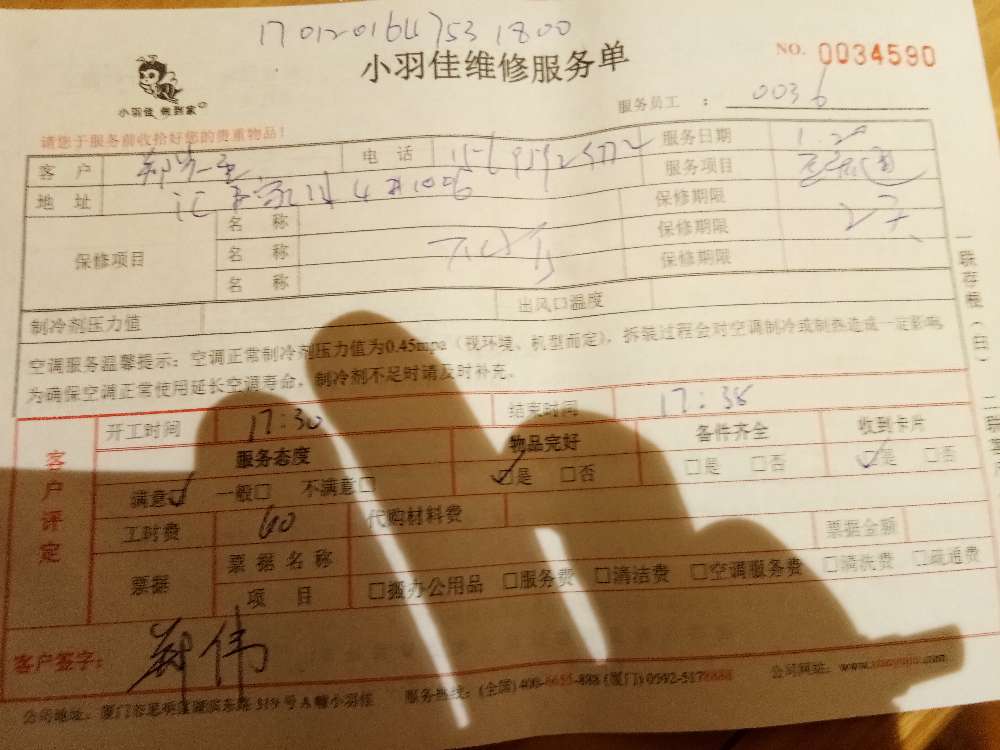 17012016475318:00
小羽佳维修服务单
NO. 0034590
小羽佳 佣到家
服务员工 : 0036
请您于服务前收拾好您的贵重物品!
客 户 郑先生 电 话 服务日期
地 址 服务项目
保修项目 名 称 保修期限 2天
名 称 保修期限
名 称 保修期限
制冷剂压力值 出风口温度
空调服务温馨提示:空调正常制冷剂压力值为0.45mpa(视环境、机型而定),拆装过程会对空调制冷或制热造成一定影响,
为确保空调正常使用延长空调寿命,制冷剂不足时请及时补充。
一联存根(白)
客户评定
开工时间 17:30 结束时间 17:38
服务态度 物品完好 备件齐全 收到卡片
满意☑ 一般□ 不满意□ ☑是 □否 □是 □否 ☑是 □否
工时费 60 代购材料费
票据 票据名称 票据金额
项 目 □搬办公用品 □服务费 □清洁费 □空调服务费 □清洗费 □疏通费
客户签字: 郑伟
公司地址:厦门市思明区湖滨东路319号A幢小羽佳 服务热线:(全国)400-6655-888 (厦门)0592-5178888 公司网站:www.xiaoyujia.com